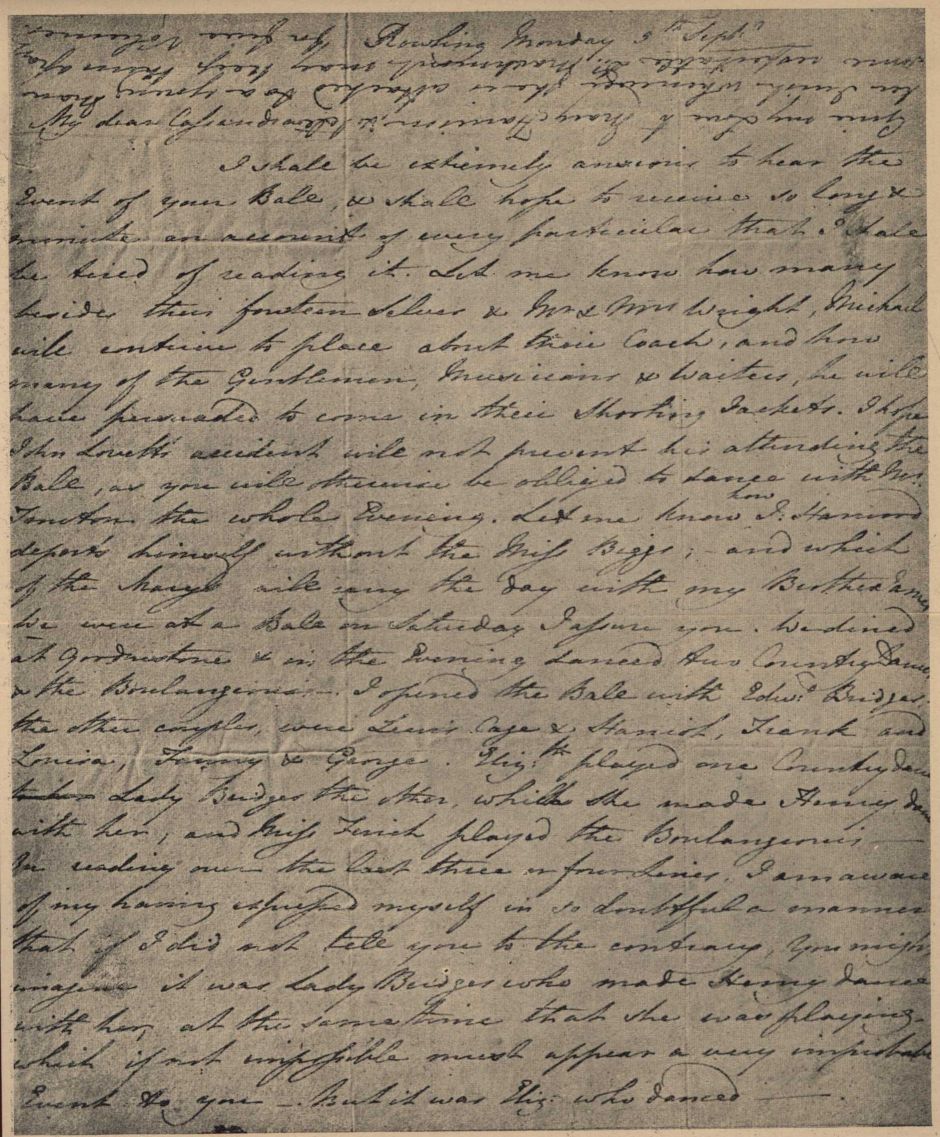 Rowling Monday 5th Septr
My dear Cassandra
I shall be extremely anxious to hear the
Event of your Ball, & shall hope to receive so long &
minute an account of every particular that I shall
be tired of reading it. Let me know how many
besides their fourteen Selves & Mr & Mrs Wright, Michael
will contrive to place about their Coach, and how
many of the Gentlemen, Musicians & Waiters, he will
have persuaded to come in their Shooting Jackets. I hope
John Lovett's accident will not prevent his attending the
Ball, as you will otherwise be obliged to dance with Mr.
Tincton the whole Evening. Let me know how J. Harwood
deports himself without the Miss Biggs; – and which
of the Marys will carry the day with my Brother James
We were at a Ball on Saturday I assure you. We dined
at Goodnestone & in the Evening danced two Country Dances
& the Boulangeries. – I opened the Ball with Edwd. Bridges;
the other couples, were Lewis Cage & Harriot, Frank and
Louisa, Fanny & George. Elizth. played one Country dance
Lady Bridges the other, while She made Henry dance
with her; and Miss Finch played the Boulangeries –
In reading over the last three or four Lines, I am aware
of my having expressed myself in so doubtful a manner
that if I did not tell you to the contrary, You might
imagine it was Lady Bridges who made Henry dance
with her, at the same time that she was playing –
which if not impossible must appear a very improbable
Event to you – . But it was Eliz: who danced – .
give my Love to Mary Harrison, &
her Luck whenever she is attached to a young Man
some respectable Dr. Marchmont may keep them apart
for five Volumes